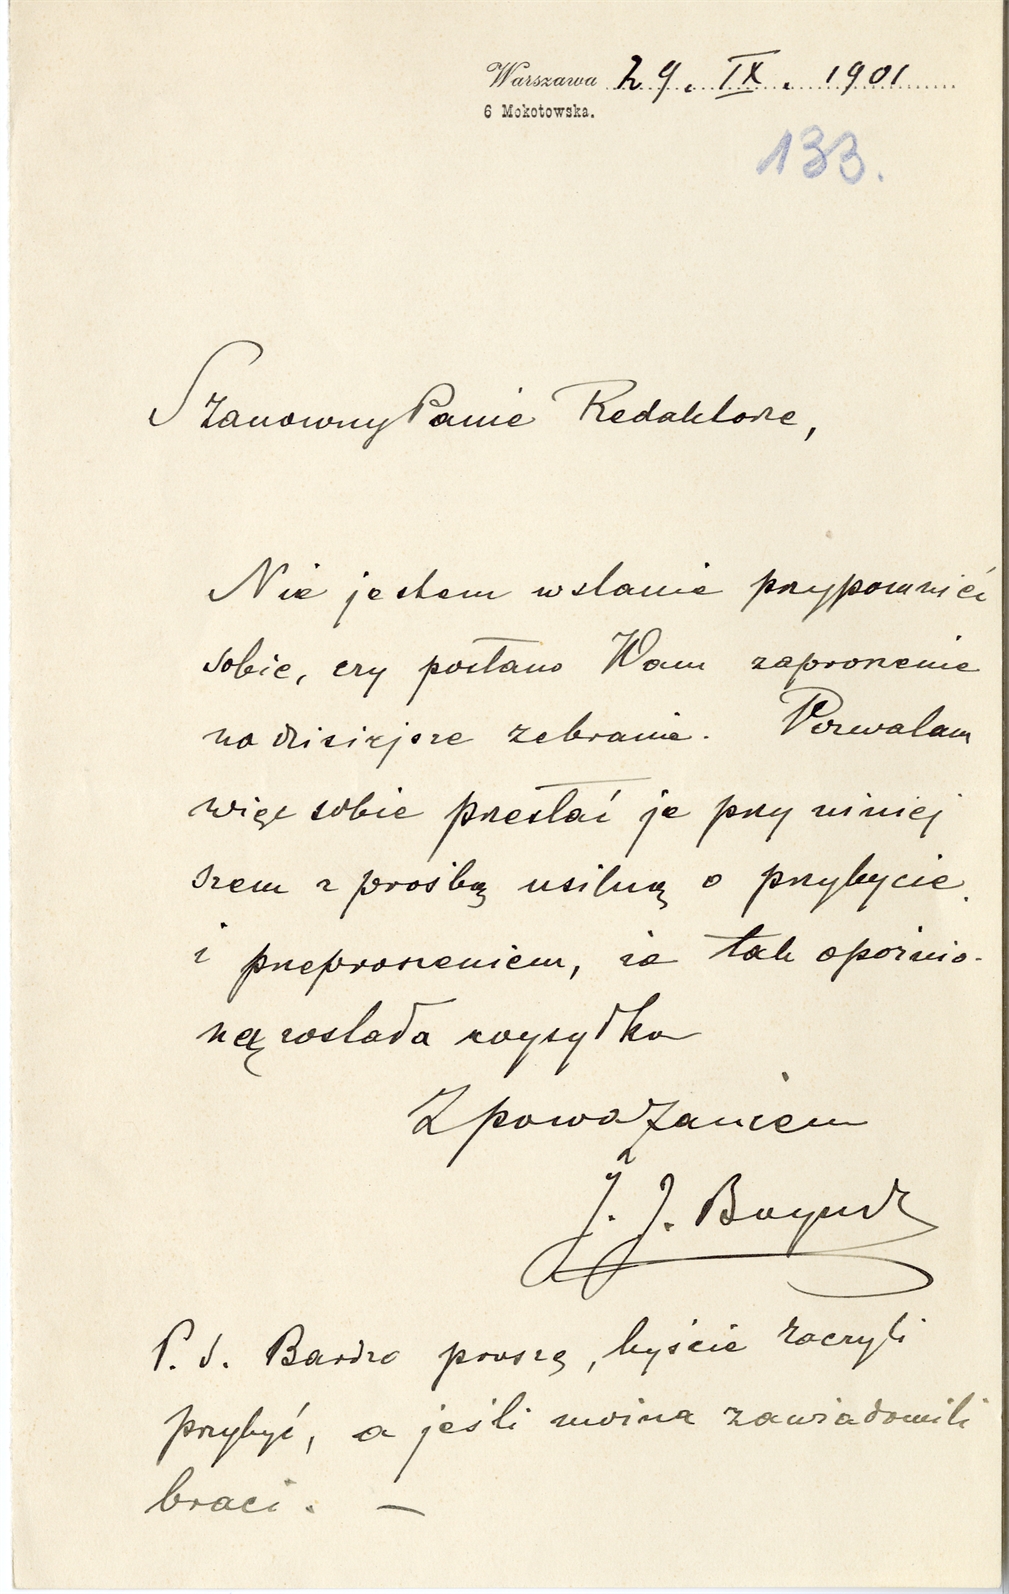 Warszawa 29. IX. 1901
6 Mokotowska.
133.
Szanowny Panie Redaktorze,
Nie jestem wstanie przypomnieć
sobie, czy posłano Wam zaproszenie
na dzisiejsze zebranie. Pozwalam
więc sobie przesłać je przy niniej
szem z prośbą usilną o przybycie
i przeproszeniem, że tak opóźnio-
ną została wysyłka
Z poważaniem
J. J.
P. S. Bardzo proszę, byście raczyli
przybyć, a jeśli można zawiadomili
braci. —